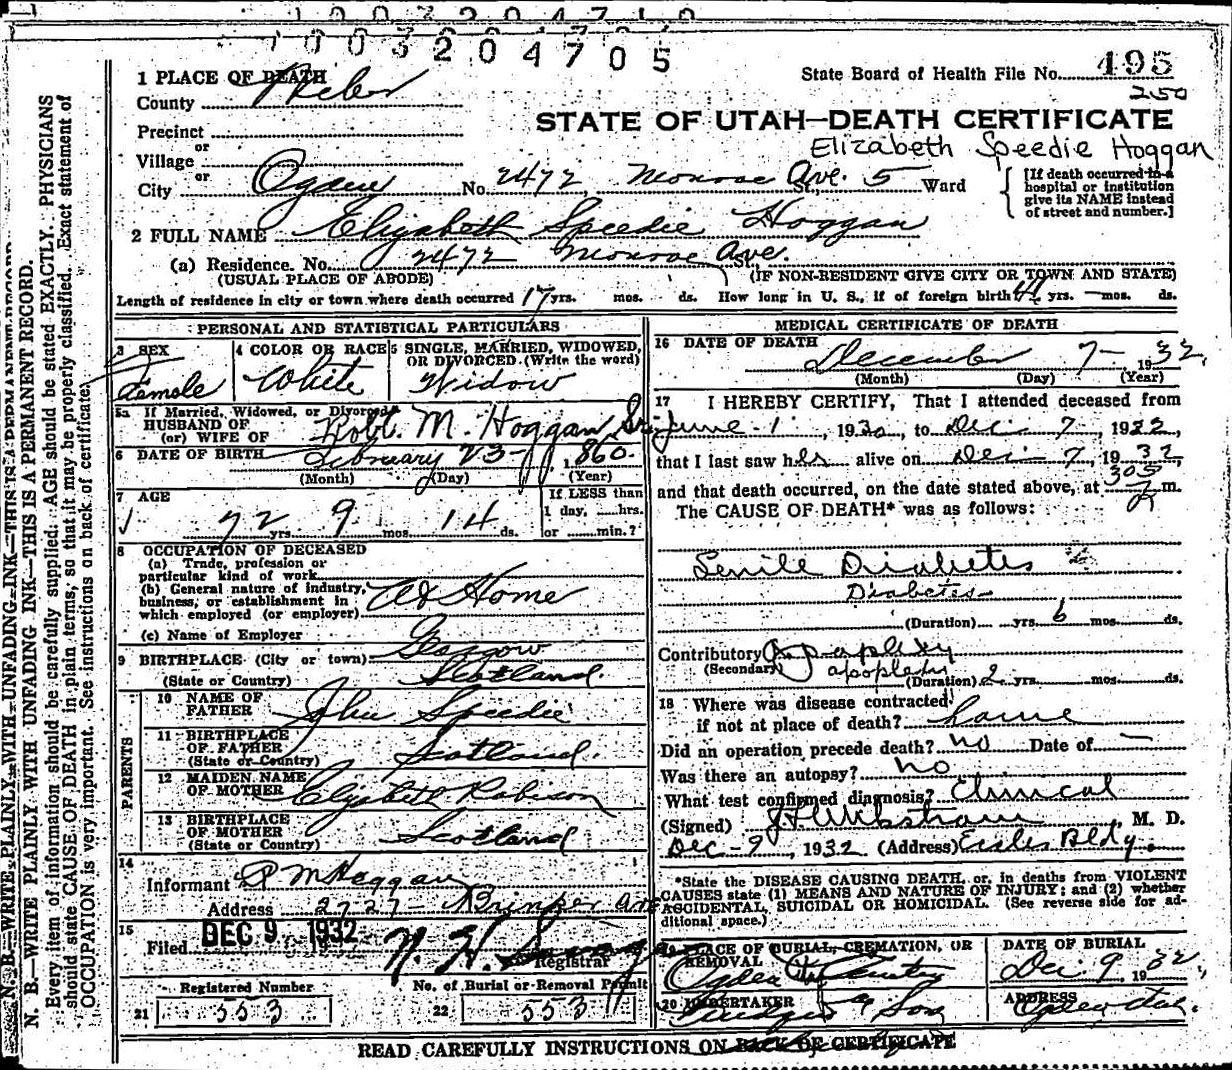 1003204710
1003204705
State Board of Health File No. 495
250
1 PLACE OF DEATH
County Weber
STATE OF UTAH—DEATH CERTIFICATE
Elizabeth Speedie Hoggan
Precinct
or
Village
or
City Ogden No. 2472, Monroe Ave. St., 5 Ward
[If death occurred in a hospital or institution give its NAME instead of street and number.]
2 FULL NAME Elizabeth Speedie Hoggan
(a) Residence. No. 2472 Monroe Ave.
(USUAL PLACE OF ABODE) (IF NON-RESIDENT GIVE CITY OR TOWN AND STATE)
Length of residence in city or town where death occurred 17 yrs. mos. ds. How long in U. S., if of foreign birth yrs. — mos. ds.
PERSONAL AND STATISTICAL PARTICULARS
3 SEX Female
4 COLOR OR RACE White
5 SINGLE, MARRIED, WIDOWED, OR DIVORCED. (Write the word) Widow
5a If Married, Widowed, or Divorced
HUSBAND OF
(or) WIFE OF Robt. M. Hoggan Sr.
6 DATE OF BIRTH February 23- 1860.
(Month) (Day) (Year)
7 AGE 72 yrs. 9 mos. 14 ds.
If LESS than
1 day, hrs.
or min.?
8 OCCUPATION OF DECEASED
(a) Trade, profession or
particular kind of work
(b) General nature of industry,
business, or establishment in
which employed (or employer) At Home
(c) Name of Employer
9 BIRTHPLACE (City or town) Glasgow
(State or Country) Scotland.
PARENTS
10 NAME OF
FATHER John Speedie
11 BIRTHPLACE
OF FATHER
(State or Country) Scotland.
12 MAIDEN NAME
OF MOTHER Elizabeth Robison
13 BIRTHPLACE
OF MOTHER
(State or Country) Scotland
14
Informant R M Hoggan
Address 2727- Brinker Ave
15
Filed DEC 9 1932
Registrar
Registered Number
21 553
No. of Burial or Removal Permit
22 553
MEDICAL CERTIFICATE OF DEATH
16 DATE OF DEATH December 7- 1932.
(Month) (Day) (Year)
17 I HEREBY CERTIFY, That I attended deceased from
June 1, 1930, to Dec 7, 1932,
that I last saw her alive on Dec 7, 1932,
and that death occurred, on the date stated above, at 305 m.
The CAUSE OF DEATH* was as follows:
Senile Diabetes
Diabetes
(Duration) yrs. 6 mos. ds.
Contributory Apoplexy
(Secondary) apoplexy
(Duration) 2 yrs. mos. ds.
18 Where was disease contracted
if not at place of death? home
Did an operation precede death? no Date of —
Was there an autopsy? no
What test confirmed diagnosis? Clinical
(Signed) M. D.
Dec-9, 1932 (Address) Eccles Bldg.
*State the DISEASE CAUSING DEATH, or, in deaths from VIOLENT
CAUSES state (1) MEANS AND NATURE OF INJURY; and (2) whether
ACCIDENTAL, SUICIDAL OR HOMICIDAL. (See reverse side for ad-
ditional space.)
19 PLACE OF BURIAL, CREMATION, OR
REMOVAL Ogden City Cemetery
DATE OF BURIAL
Dec. 9, 1932
20 UNDERTAKER & Son
ADDRESS Ogden Utah.
READ CAREFULLY INSTRUCTIONS ON BACK OF CERTIFICATE
N. B.—WRITE PLAINLY WITH UNFADING INK—THIS IS A PERMANENT RECORD.
N. B.—WRITE PLAINLY WITH UNFADING INK—THIS IS A PERMANENT RECORD.
Every item of information should be carefully supplied. AGE should be stated EXACTLY. PHYSICIANS
should state CAUSE OF DEATH in plain terms, so that it may be properly classified. Exact statement of
OCCUPATION is very important. See instructions on back of certificate.